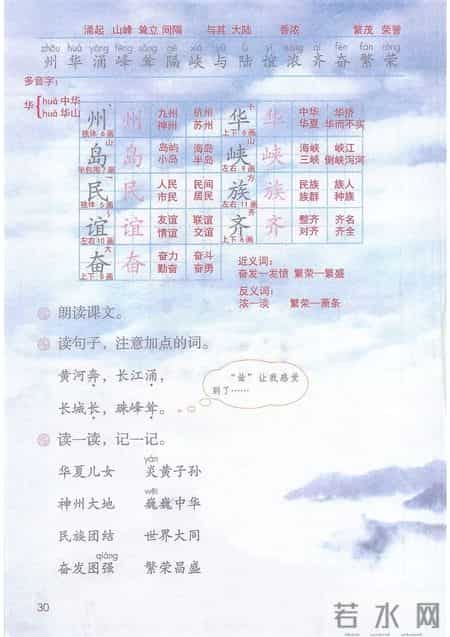 涌起 山峰 耸立 间隔 与其 大陆 香浓 繁茂 荣誉
zhōu huá yǒng fēng sǒng gé xiá yǔ lù yì nóng qí fèn fán róng
州 华 涌 峰 耸 隔 峡 与 陆 谊 浓 齐 奋 繁 荣
多音字：
华 huá 中华
huà 华山
州 州 九州 杭州 华 华 中华 华侨
神州 苏州 华夏 华而不实
独体 6画 上下 6画
岛 岛 岛屿 海岛 峡 峡 海峡 峡江
小岛 半岛 三峡 倒峡泻河
半包围 7画 左右 9画
民 民 人民 民间 族 族 民族 族人
市民 居民 族群 种族
独体 5画 左右 11画
谊 谊 友谊 联谊 齐 齐 整齐 齐名
情谊 交谊 对齐 齐全
左右 10画 上下 6画
奋 奋 奋力 奋斗
勤奋 奋勇
上下 8画
近义词：
奋发—发愤 繁荣—繁盛
反义词：
浓—淡 繁荣—萧条
朗读课文。
读句子，注意加点的词。
黄河奔，长江涌，
长城长，珠峰耸。
“耸”让我感觉
到了……
读一读，记一记。
yán
华夏儿女 炎黄子孙
wēi
神州大地 巍巍中华
民族团结 世界大同
qiáng
奋发图强 繁荣昌盛
30
若水网